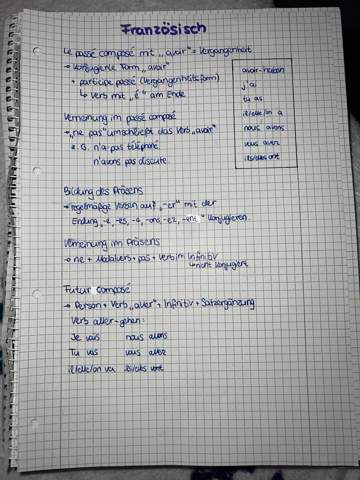 Französisch
Le passé composé mit „avoir" = Vergangenheit
→ konjugierte Form „avoir"
+ participe passé (Vergangenheitsform)
↳ Verb mit „é" am Ende
avoir-haben
j'ai
tu as
il/elle/on a
nous avons
vous avez
ils/elles ont
Verneinung im passé composé
→ „ne pas" umschließt das Verb „avoir"
z.B. n'a pas téléphoné
n'avons pas discuté
Bildung des Präsens
→ regelmäßige Verben auf „-er" mit der
Endung „-e, -es, -e, -ons, -ez, -ent" konjugieren.
Verneinung im Präsens
→ ne + + pas + Verb im Infinitiv
↳ nicht konjugiert
Futur composé
→ Person + Verb „aller" + Infinitiv + Satzergänzung
Verb aller-gehen:
Je vais nous allons
Tu vas vous allez
il/elle/on va ils/elles vont